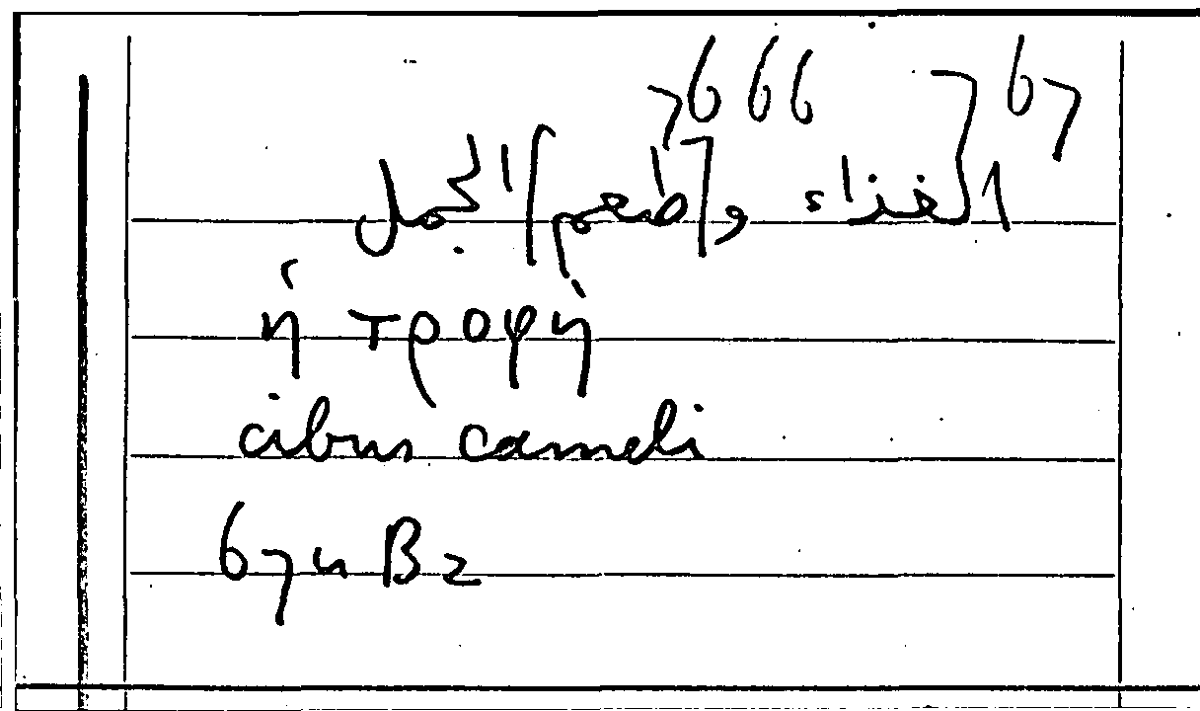 666 67
ال[غذاء و[طعم] الجمل
ἡ τροφὴ
cibus cameli
67 u B2